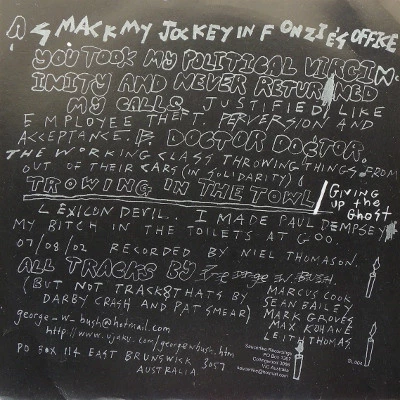 A SMACK MY JOCKEY IN FONZIE'S OFFICE
YOU TOOK MY POLITICAL VIRGIN
INITY AND NEVER RETURNED
MY CALLS. JUSTIFIED, LIKE
EMPLOYEE THEFT. PERVERSION AND
ACCEPTANCE. B. DOCTOR DOCTOR.
THE WORKING CLASS THROWING THINGS FROM
OUT OF THEIR CARS (IN SOLIDARITY)
TROWING IN THE TOWL / GIVING
up the
Ghost
LEXICON DEVIL.. I MADE PAUL DEMPSEY
MY BITCH IN THE TOILETS AT GOO.
07/09/02 RECORDED BY NIEL THOMASON.
ALL TRACKS BY George W. BUSH.
(BUT NOT TRACK 8 THATS BY
DARBY CRASH AND PAT SMEAR)
MARCUS COOK
SEAN BAILEY
MARK GROVES
MAX KOHANE
LEITH THOMAS
george_w_bush@hotmail.com
http://www.ujaku.com/georgewbush.htm
PO BOX 114 EAST BRUNSWICK 3057
AUSTRALIA
PO Box 1357
Collingwood 3066
VIC Australia